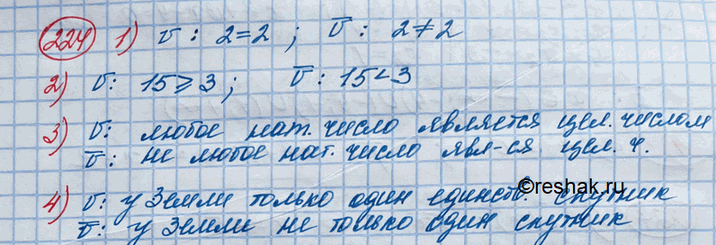 224 1) v: 2=2 ; v̅: 2≠2
2) v: 15⩾3; v̅: 15<3
3) v: любое нат. число является цел. числом
v̅: не любое нат. число явл-ся цел. ч.
©reshak.ru
4) v: у Земли только один единств. спутник
v̅: у Земли не только один спутник